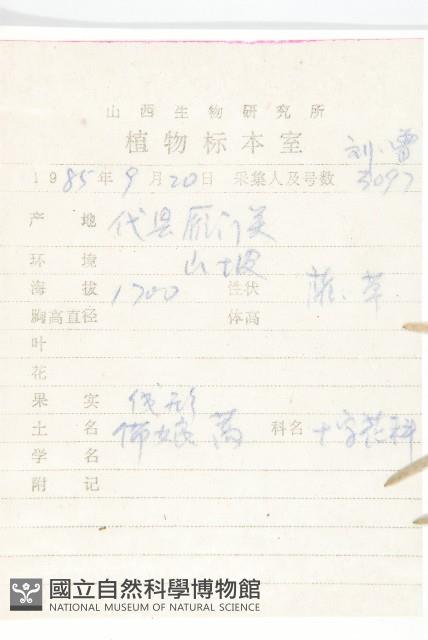 山西生物研究所
植物标本室
刘、曹
1985年9月20日 采集人及号数 3097
产地 代县雁门关
环境 山坡
海拔 1700 性状 草
胸高直径 体高
叶
花
果实
土名 蒿 科名 十字花科
学名
附记
國立自然科學博物館
NATIONAL MUSEUM OF NATURAL SCIENCE